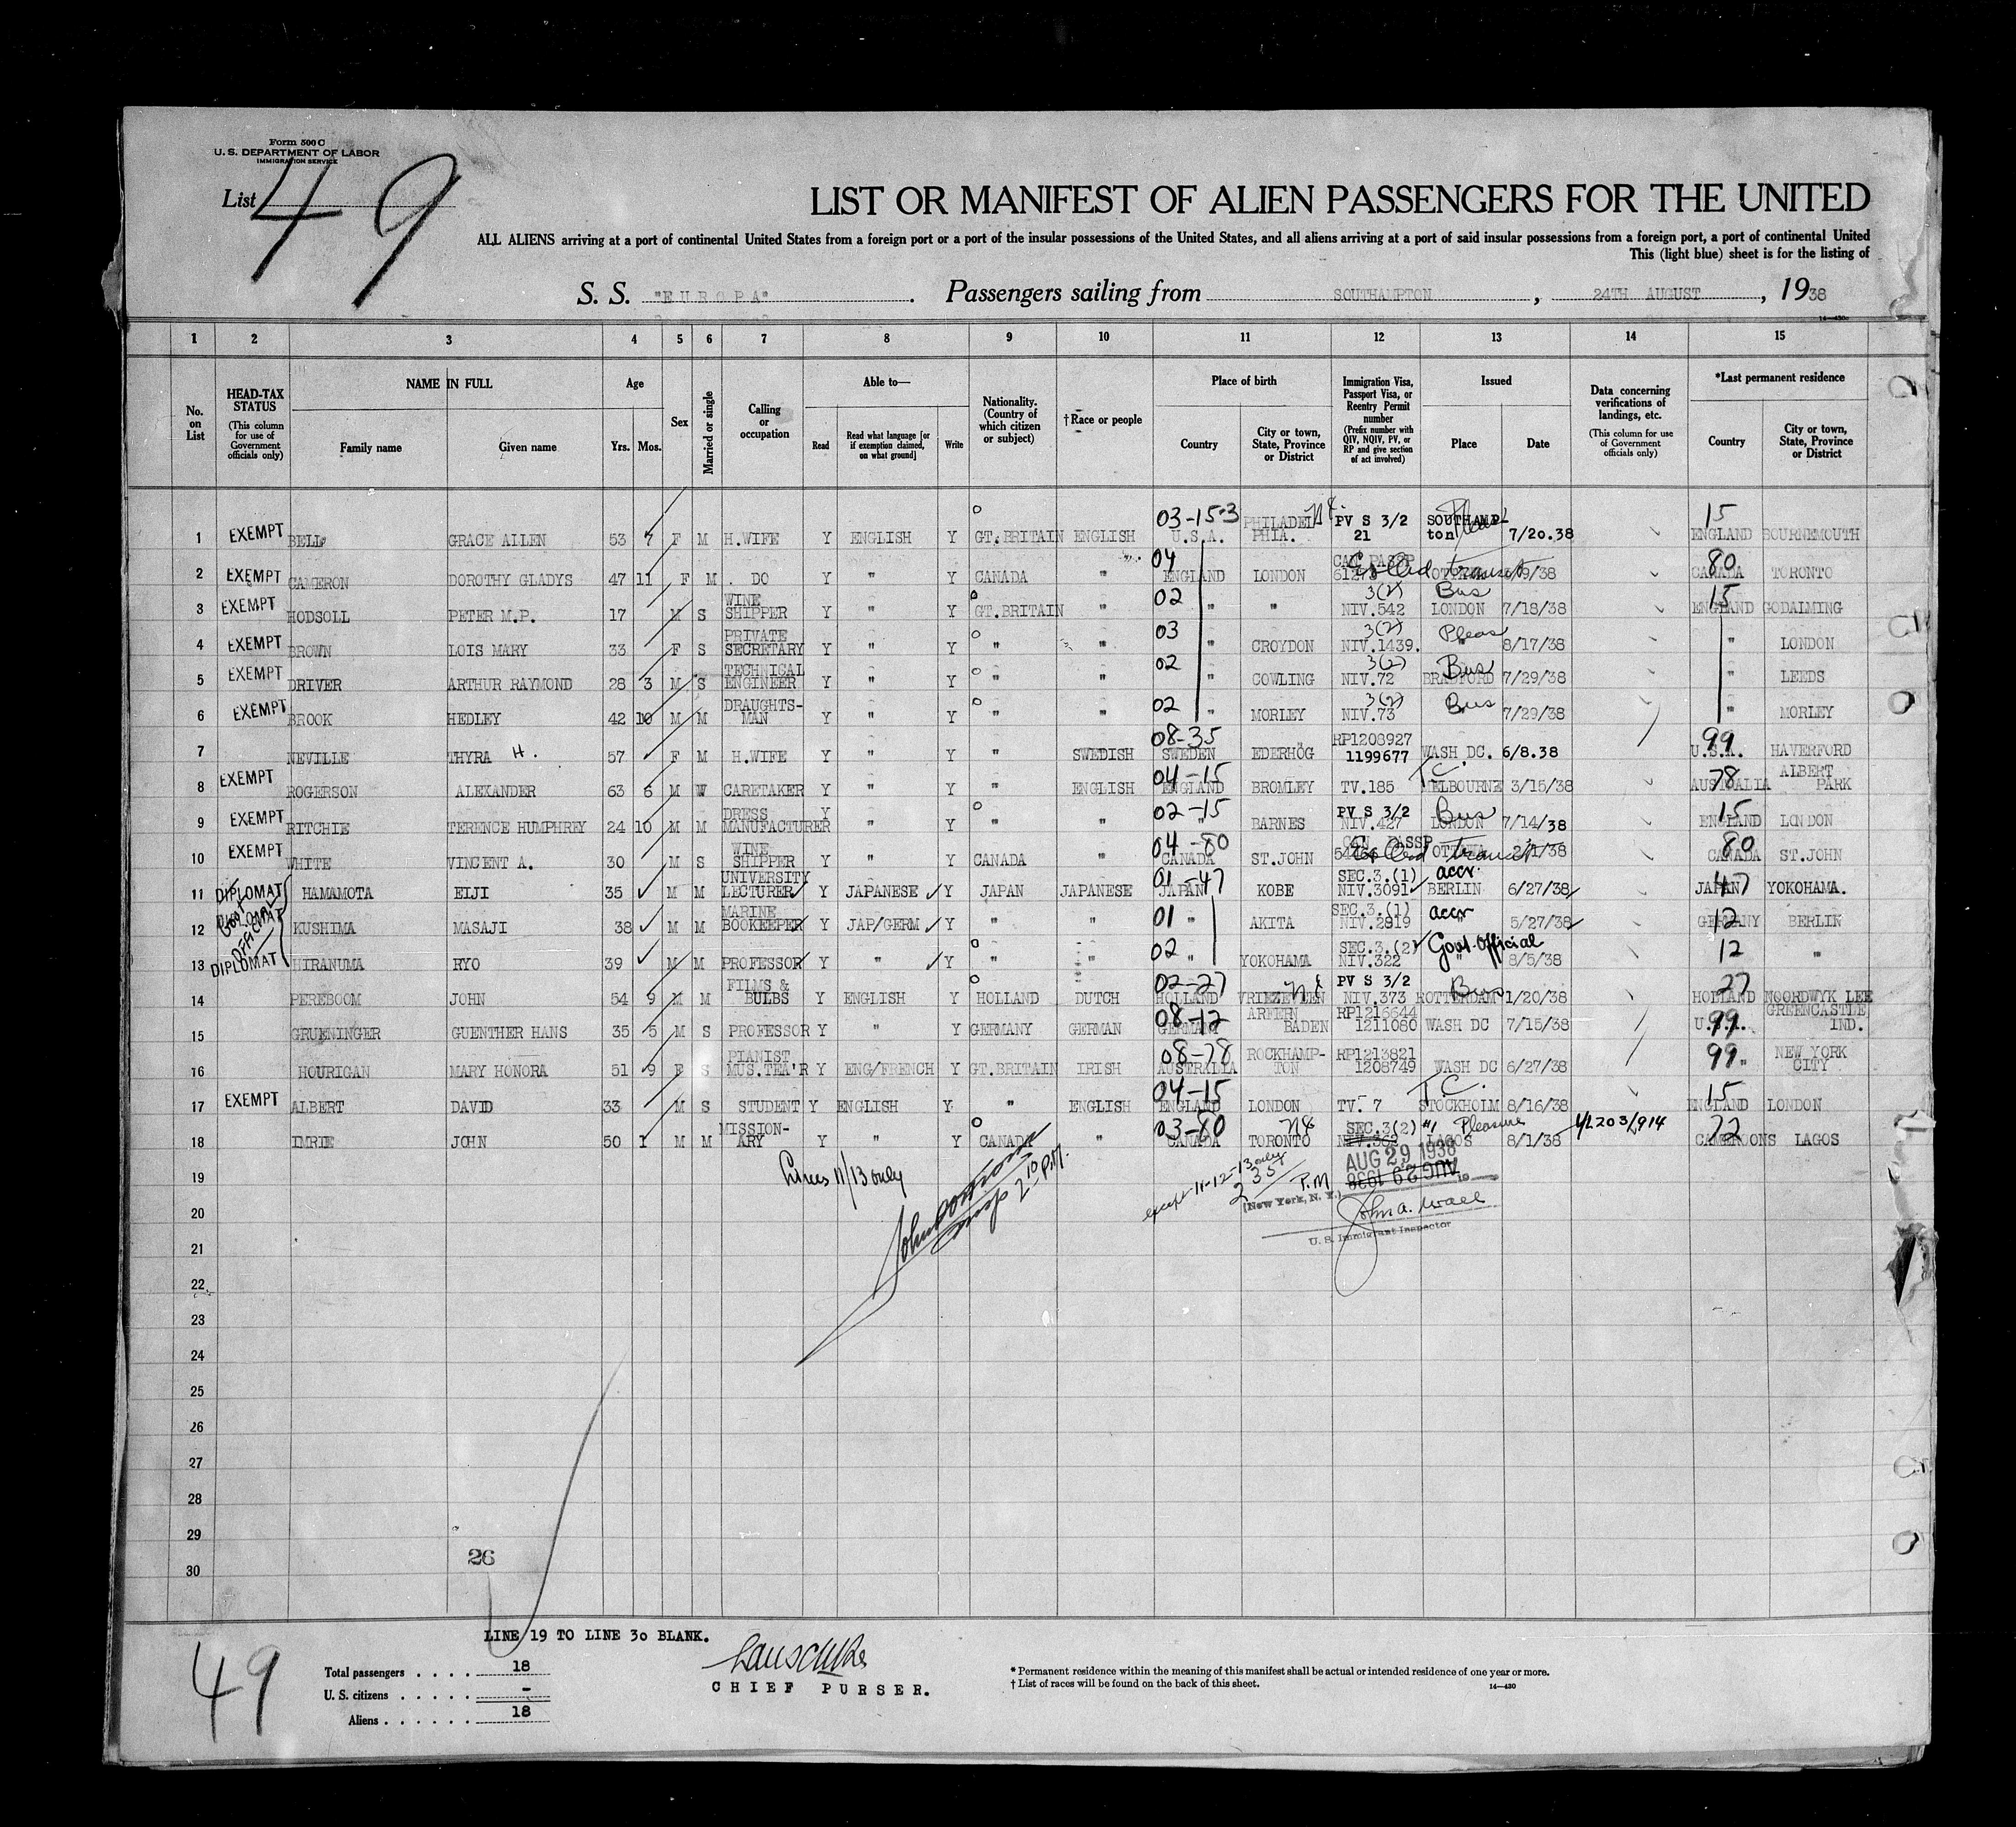 Form 500 C
U. S. DEPARTMENT OF LABOR
IMMIGRATION SERVICE
List 49
LIST OR MANIFEST OF ALIEN PASSENGERS FOR THE UNITED
ALL ALIENS arriving at a port of continental United States from a foreign port or a port of the insular possessions of the United States, and all aliens arriving at a port of said insular possessions from a foreign port, a port of continental United
This (light blue) sheet is for the listing of
S. S. "EUROPA". Passengers sailing from SOUTHAMPTON, 24TH AUGUST, 1938
14-430
1 2 3 4 5 6 7 8 9 10 11 12 13 14 15
No. on List
HEAD-TAX STATUS (This column for use of Government officials only)
NAME IN FULL Family name Given name
Age Yrs. Mos.
Sex
Married or single
Calling or occupation
Able to— Read Read what language [or if exemption claimed, on what ground] Write
Nationality. (Country of which citizen or subject)
† Race or people
Place of birth Country City or town, State, Province or District
Immigration Visa, Passport Visa, or Reentry Permit number (Prefix number with QIV, NQIV, PV, or RP and give section of act involved)
Issued Place Date
Data concerning verifications of landings, etc. (This column for use of Government officials only)
*Last permanent residence Country City or town, State, Province or District
1 EXEMPT BELL GRACE ALLEN 53 7 F M H.WIFE Y ENGLISH Y GT.BRITAIN ENGLISH 03-15-3 U.S.A. PHILADELPHIA. PV S 3/2 21 SOUTHAMPton Pleas 7/20.38 15 ENGLAND BOURNEMOUTH
2 EXEMPT CAMERON DOROTHY GLADYS 47 11 F M . DO Y " Y CANADA " 04 ENGLAND LONDON CAN PASSP transit /9/38 80 CANADA TORONTO
3 EXEMPT HODSOLL PETER M.P. 17 M S WINE SHIPPER Y " Y GT.BRITAIN " 02 " " 3(2) NIV.542 Bus LONDON 7/18/38 15 ENGLAND GODALMING
4 EXEMPT BROWN LOIS MARY 33 F S PRIVATE SECRETARY Y " Y " " 03 " CROYDON 3(2) NIV.1439. Pleas " 8/17/38 " LONDON
5 EXEMPT DRIVER ARTHUR RAYMOND 28 3 M S TECHNICAL ENGINEER Y " Y " " 02 " COWLING 3(2) NIV.72 Bus BRADFORD 7/29/38 " LEEDS
6 EXEMPT BROOK HEDLEY 42 10 M M DRAUGHTS-MAN Y " Y " " 02 " MORLEY 3(2) NIV.73 Bus " 7/29/38 " MORLEY
7 NEVILLE THYRA H. 57 F M H.WIFE Y " Y " SWEDISH 08-35 SWEDEN EDERHÖG RP1208927 1199677 WASH DC. 6/8.38 99 U.S.A. HAVERFORD
8 EXEMPT ROGERSON ALEXANDER 63 6 M W CARETAKER Y " Y " ENGLISH 04-15 ENGLAND BROMLEY TV.185 T.C. MELBOURNE 3/15/38 78 AUSTRALIA ALBERT PARK
9 EXEMPT RITCHIE TERENCE HUMPHREY 24 10 M M DRESS MANUFACTURER Y " Y " " 02-15 " BARNES PV S 3/2 NIV.427 Bus LONDON 7/14/38 15 ENGLAND LONDON
10 EXEMPT WHITE VINCENT A. 30 M S WINE SHIPPER Y " Y CANADA " 04-80 CANADA ST.JOHN CAN PASSP transit OTTAWA 80 CANADA ST.JOHN
11 DIPLOMAT HAMAMOTA EIJI 35 M M UNIVERSITY LECTURER Y JAPANESE Y JAPAN JAPANESE 01-47 JAPAN KOBE SEC.3.(1) NIV.3091 accr. BERLIN 6/27/38 47 JAPAN YOKOHAMA.
12 DIPLOMAT KUSHIMA MASAJI 38 M M MARINE BOOKEEPER Y JAP/GERM Y " " 01 " AKITA SEC.3.(1) NIV.2819 accr " 5/27/38 12 GERMANY BERLIN
Govt OFFICIAL
13 DIPLOMAT HIRANUMA RYO 39 M M PROFESSOR Y " Y " " 02 " YOKOHAMA SEC.3.(2) NIV.322 Govt. Official " 8/5/38 12 " "
14 PEREBOOM JOHN 54 9 M M FILMS & BULBS Y ENGLISH Y HOLLAND DUTCH 02-27 HOLLAND VRIEZEVEEN PV S 3/2 NIV.373 Bus ROTTERDAM 1/20/38 27 HOLLAND NOORDWYK LEE
15 GRUENINGER GUENTHER HANS 35 5 M S PROFESSOR Y " Y GERMANY GERMAN 08-12 GERMANY BADEN RP1216644 1211080 WASH DC 7/15/38 99 U.S.A. GREENCASTLE IND.
16 HOURIGAN MARY HONORA 51 9 F S PIANIST MUS.TEA'R Y ENG/FRENCH Y GT.BRITAIN IRISH 08-78 AUSTRALIA ROCKHAMP-TON RP1213821 1208749 WASH DC 6/27/38 99 " NEW YORK CITY
17 EXEMPT ALBERT DAVID 33 M S STUDENT Y ENGLISH Y " ENGLISH 04-15 ENGLAND LONDON TV. 7 T.C. STOCKHOLM 8/16/38 15 ENGLAND LONDON
18 IMRIE JOHN 50 1 M M MISSION-ARY Y " Y CANADA " 03-80 CANADA TORONTO SEC.3(2) NIV.362 Pleasure LAGOS 8/1/38 72 CAMEROONS LAGOS
19 Lines 11/13 only 2 10 P.M. except 11-12-13 only 2 35 P.M. (New York, N. Y.) AUG 29 1938 AUG 29 1938
20 John A. Wall
21 U. S. Immigrant Inspector
22
23
24
25
26
27
28
29
30
26
LINE 19 TO LINE 30 BLANK.
49
Total passengers . . . . 18
U. S. citizens . . . . . -
Aliens . . . . . . 18
CHIEF PURSER.
* Permanent residence within the meaning of this manifest shall be actual or intended residence of one year or more.
† List of races will be found on the back of this sheet.
14-430